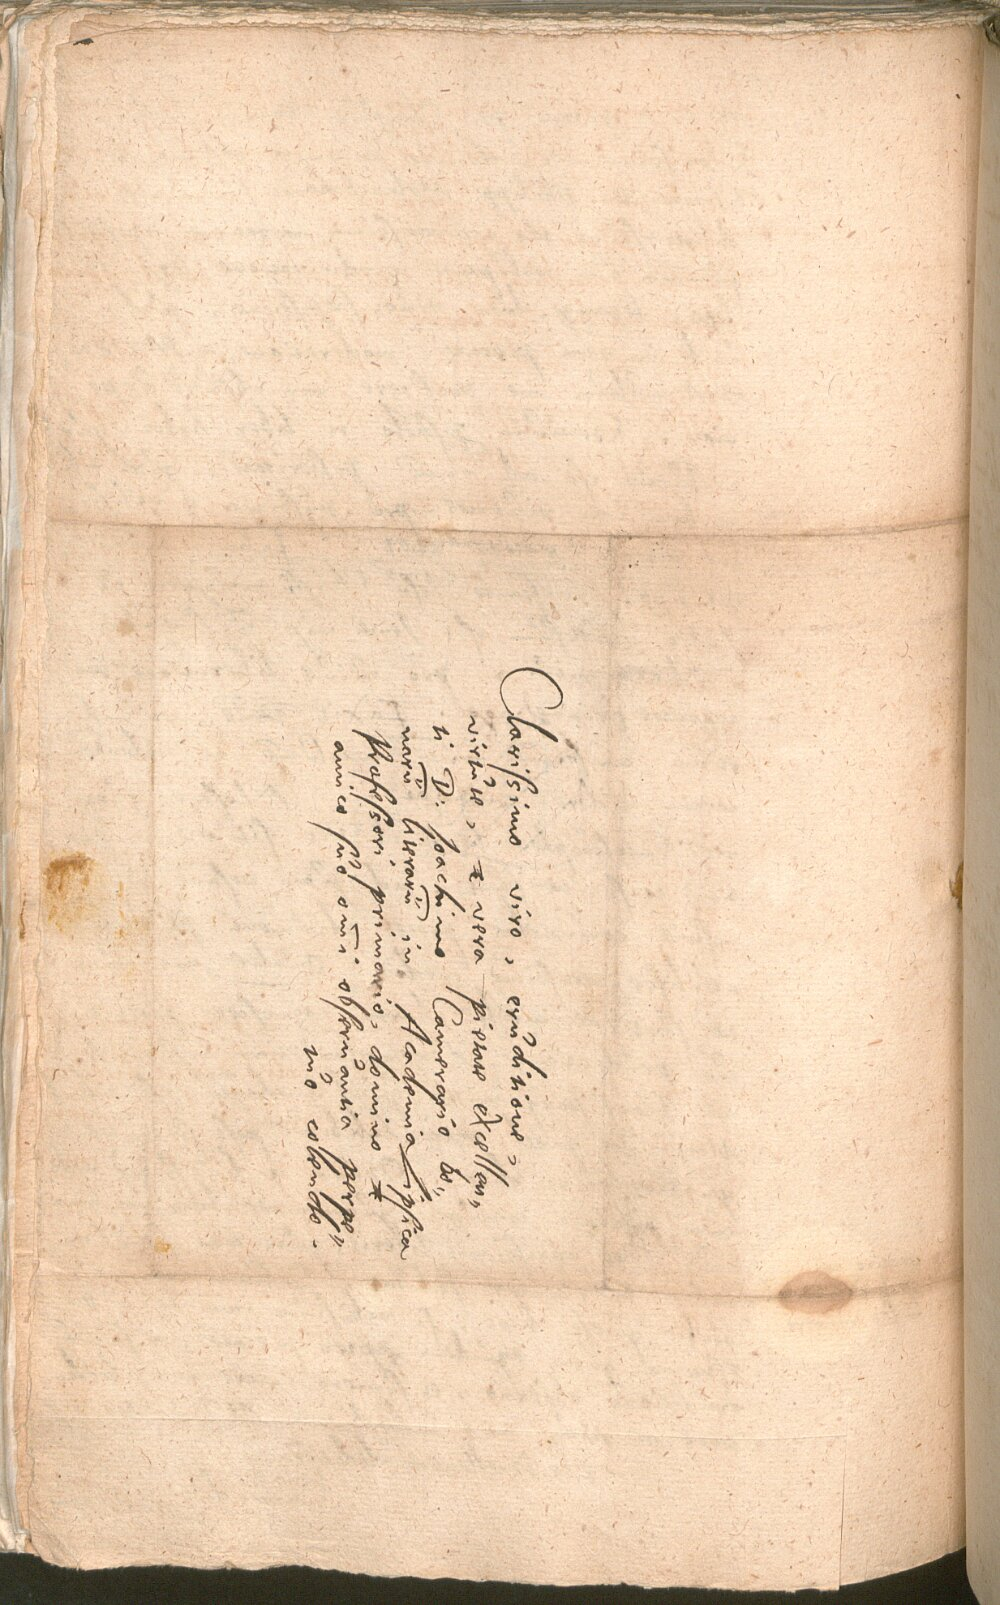 Clarissimo viro, eruditione,
virtute, & vera pietate excellen„
ti D: Joachimo Camerario bo„
narū literarū in Academia Lipsica
Professori primario, domino &
amico suo om̄i observantia perpe„
tuo colendo.